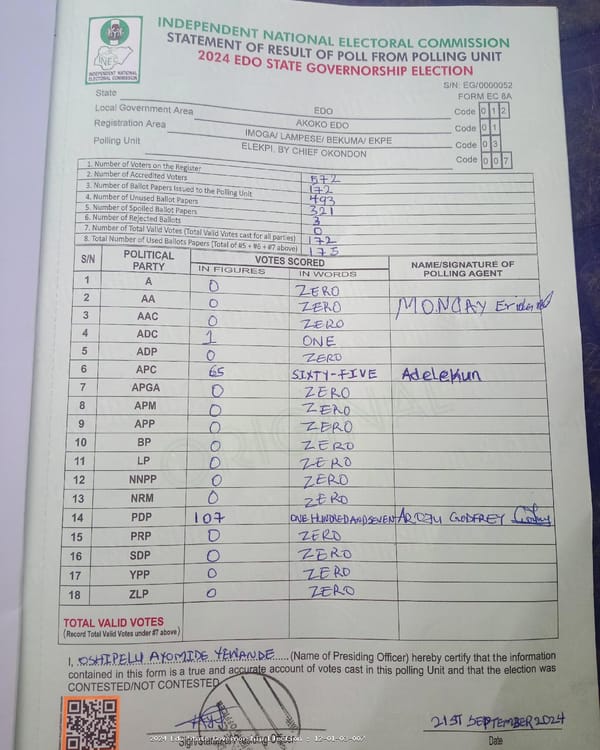 INDEPENDENT NATIONAL ELECTORAL COMMISSION
STATEMENT OF RESULT OF POLL FROM POLLING UNIT
2024 EDO STATE GOVERNORSHIP ELECTION
INEC
INDEPENDENT NATIONAL
ELECTORAL COMMISSION
S/N: EG/0000052
FORM EC 8A
State EDO Code 012
Local Government Area AKOKO EDO Code 01
Registration Area IMOGA/ LAMPESE/ BEKUMA/ EKPE Code 03
Polling Unit ELEKPI. BY CHIEF OKONDON Code 007
1. Number of Voters on the Register 572
2. Number of Accredited Voters 172
3. Number of Ballot Papers Issued to the Polling Unit 493
4. Number of Unused Ballot Papers 321
5. Number of Spoiled Ballot Papers 3
6. Number of Rejected Ballots 0
7. Number of Total Valid Votes (Total Valid Votes cast for all parties) 172
8. Total Number of Used Ballots Papers (Total of #5 + #6 + #7 above) 175
S/N POLITICAL PARTY VOTES SCORED NAME/SIGNATURE OF POLLING AGENT
IN FIGURES IN WORDS
1 A 0 ZERO
2 AA 0 ZERO MONDAY
3 AAC 0 ZERO
4 ADC 1 ONE
5 ADP 0 ZERO
6 APC 65 SIXTY-FIVE Adelekun
7 APGA 0 ZERO
8 APM 0 ZERO
9 APP 0 ZERO
10 BP 0 ZERO
11 LP 0 ZERO
12 NNPP 0 ZERO
13 NRM 0 ZERO
14 PDP 107 ONE HUNDRED AND SEVEN GODFREY
15 PRP 0 ZERO
16 SDP 0 ZERO
17 YPP 0 ZERO
18 ZLP 0 ZERO
TOTAL VALID VOTES
(Record Total Valid Votes under #7 above)
I, OSHIPELU AYOMIDE YEWANDE (Name of Presiding Officer) hereby certify that the information
contained in this form is a true and accurate account of votes cast in this polling Unit and that the election was
CONTESTED/NOT CONTESTED
21ST SEPTEMBER 2024
Date
2024 Edo State Governorship Election - 12-01-03-007